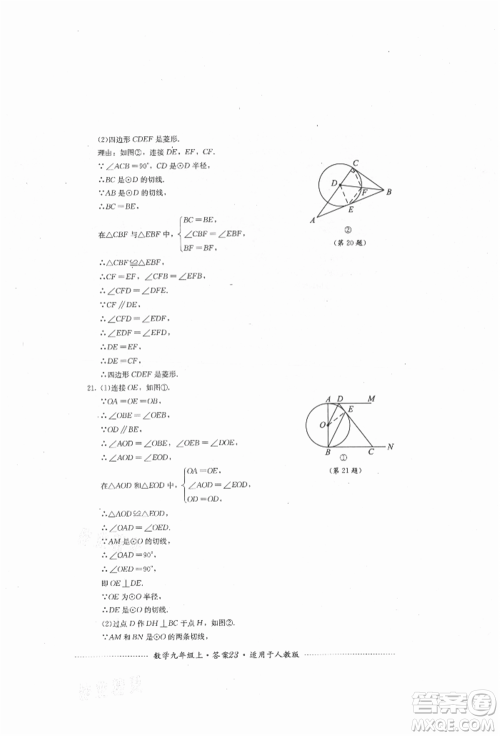 (2)四边形CDEF是菱形.
理由:如图②,连接DE,EF,CF.
∵∠ACB=90°,CD是⊙D半径,
∴BC是⊙D的切线.
∵AB是⊙D的切线,
∴BC=BE.
在△CBF与△EBF中,{BC=BE,
∠CBF=∠EBF,
BF=BF,
∴△CBF≌△EBF,
∴CF=EF,∠CFB=∠EFB,
∴∠CFD=∠DFE.
∵CF∥DE,
∴∠CFD=∠EDF,
∴∠EDF=∠EFD,
∴DE=EF,
∴DE=CF,
∴四边形CDEF是菱形.
C
D
F
B
E
A
②
(第20题)
21.(1)连接OE,如图①.
∵OA=OB=OE,
∴∠OBE=∠OEB.
∵OD∥BE,
∴∠AOD=∠OBE,∠OEB=∠DOE,
∴∠AOD=∠DOE.
在△AOD和△EOD中,{OA=OE,
∠AOD=∠EOD,
OD=OD,
∴△AOD≌△EOD,
∴∠OAD=∠OED.
∵AM是⊙O的切线,
∴∠OAD=90°,
∴∠OED=90°,
即OE⊥DE.
∵OE为⊙O半径,
∴DE是⊙O的切线.
A D M
E
O
B C N
①
(第21题)
(2)过点D作DH⊥BC于点H,如图②.
∵AM和BN是⊙O的两条切线,
数学九年级上·答案23·适用于人教版